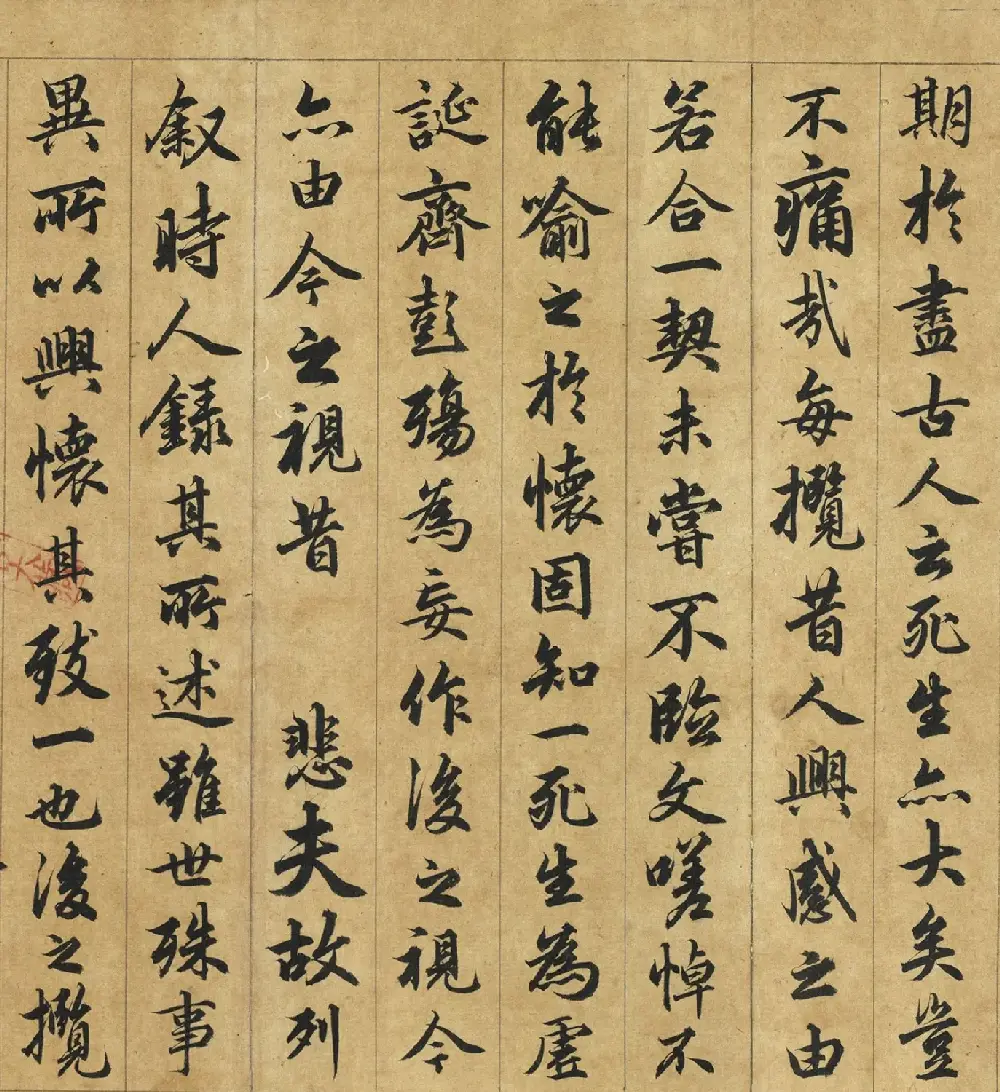 期於盡古人云死生亦大矣豈
不痛哉每攬昔人興感之由
若合一契未嘗不臨文嗟悼不
能喻之於懷固知一死生為虛
誕齊彭殤為妄作後之視今
亦由今之視昔 悲夫故列
叙時人錄其所述雖世殊事
異所以興懷其致一也後之攬